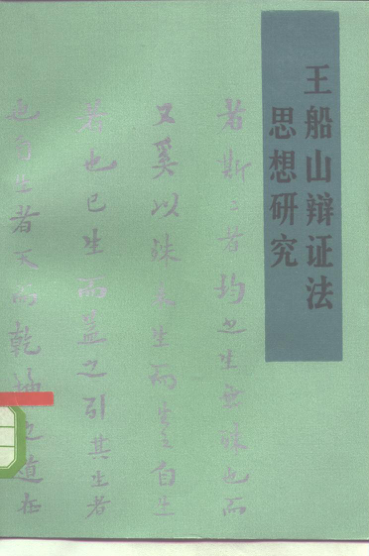 王船山辩证法
思想研究
若斯之者均之生无疑也而
又奚以殊未生而生之自生
者也已生而益之引其生者
也自生者天而乾坤之道在